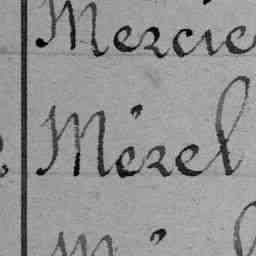 Mercie
Mézel